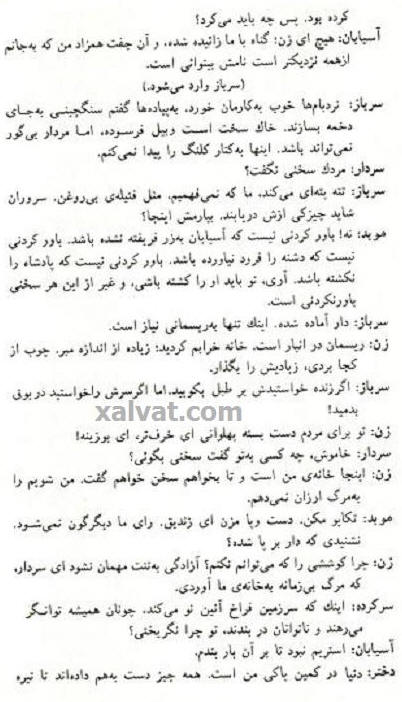 کرده بود. پس چه باید می‌کرد؟
آسیابان: هیچ ای زن؛ گناه با ما زائیده شده، و آن جفت همزاد من که به‌جانم
ازهمه نزدیکتر است نامش بینوائی است.
(سرباز وارد می‌شود.)
سرباز: نردبام‌ها خوب به‌کارمان خورد. به‌پیاده‌ها گفتم سنگچینی به‌جای
دخمه بسازند. خاك سخت است وبیل فرسوده، اما مردار بی‌گور
نمی‌تواند باشد. اینها به‌کنار کلنگ را پیدا نمی‌کنم.
سردار: مردك سخنی نگفت؟
سرباز: تته پته‌ای می‌کند. ما که نمی‌فهمیم، مثل فتیله‌ی بی‌روغن. سروران
شاید چیزکی ازش دریابند. بیارمش اینجا؟
موبد: نه! باور کردنی نیست که آسیابان به‌زر فریفته نشده باشد. باور کردنی
نیست که دشنه را فرود نیاورده باشد. باور کردنی نیست که پادشاه را
نکشته باشد. آری، تو باید او را کشته باشی، و غیر از این هر سخنی
باورنکردنی است.
سرباز: دار آماده شده. اینك تنها به‌ریسمانی نیاز است.
زن: ریسمان در انبار است. خانه خرابم کردید؛ زیاده از اندازه مبر. چوب از
کجا بردی، زیادیش را بگذار.
سرباز: اگرزنده خواستیدش بر طبل بکوبید. اما اگرسرش راخواستید دربوق
بدمید!
xalvat.com
زن: تو برای مردم دست بسته پهلوانی ای خرف‌تر، ای بوزینه!
سردار: خاموش، چه کسی به‌تو گفت سخنی بگوئی؟
زن: اینجا خانه‌ی من است و تا بخواهم سخن خواهم گفت. من شویم را
به‌مرگ ارزان نمی‌دهم.
موبد: تکاپو مکن. دست وپا مزن ای زندیق. رای ما دیگرگون نمی‌شود.
نشنیدی که دار بر پا شده؟
زن: چرا کوششی را که می‌توانم نکنم؟ آزادگی به‌ننت مهمان نشود ای سردار،
که مرگ بی‌زمانه به‌خانه‌ی ما آوردی.
سرکرده: اینك که سرزمین فراخ آئین نو می‌کند، چونان همیشه توانگر
می‌رهند و ناتوانان در بندند، تو چرا نگریختی؟
آسیابان: استریم نبود تا بر آن بار بندم.
دختر: دنیا در کمین پاکی من است. همه چیز دست به‌هم داده‌اند تا تیره